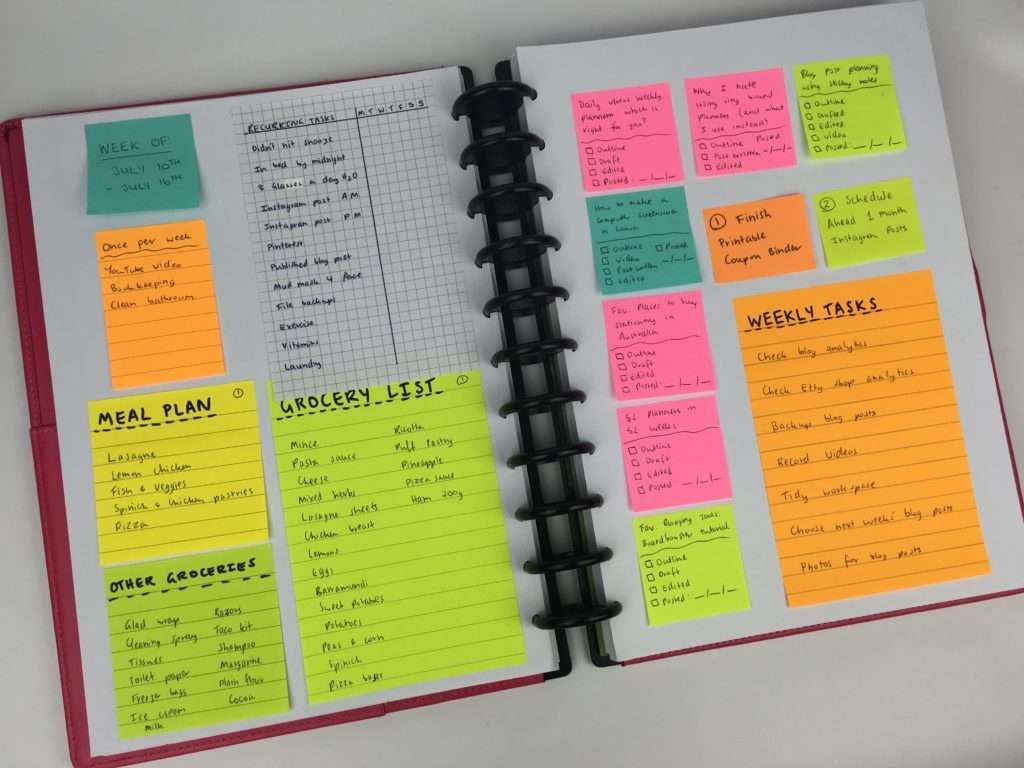 WEEK OF:
JULY 10TH
- JULY 16TH
Once per week
YouTube video
Bookkeeping
Clean bathroom
RECURRING TASKS
M T W T F S S
Didn't hit snooze
In bed by midnight
8 Glasses a day H2O
Instagram post A.M
Instagram post P.M
Pinterest
Published blog post
Mud mask 4 face
File backups
Exercise
Vitamins
Laundry
MEAL PLAN ①
Lasagne
Lemon Chicken
Fish & Veggies
Spinich & Chicken pastries
Pizza
GROCERY LIST ①
Mince
Pasta sauce
Cheese
Mixed herbs
Lasagne sheets
Chicken breast
Lemons
Eggs
Barramundi
Sweet Potatoes
Potatoes
Peas & corn
Spinich
Pizza bases
Ricotta
Puff Pastry
Pineapple
Pizza sauce
Ham 200g
OTHER GROCERIES
Glad wrap
Cleaning spray
Tissues
Toilet paper
Freezer bags
Ice cream
Milk
Razors
Taco kit
Shampoo
Margarine
Plain flour
Cocoa
Daily versus weekly
planners which is
right for you?
Outline
Draft
Edited
Posted: _/_/_
Why I hate
using ring bound
planners (and what
I use instead)
Outline Posted
Post written _/_/_
Edited
Blog post planning
using sticky notes
Outline
Drafted
Edited
Video
Posted: _/_/_
How to make a
Outline Posted
Video _/_/_
Post written
Edited
① Finish
Printable
Coupon Binder
② Schedule
Ahead 1 month
Instagram Posts
Fav. Places to buy
stationery in
Australia
Outline
Draft
Edited
Posted: _/_/_
52 Planners in
52 Weeks
Outline
Draft
Edited
Posted: _/_/_
Fav. Blogging tools:
Boardbooster tutorial
Outline
Draft
Edited
Posted: _/_/_
WEEKLY TASKS
Check blog analytics
Check Etsy shop analytics
Backups blog posts
Record Videos
Tidy work-space
Choose next weeks' blog posts
Photos for blog posts